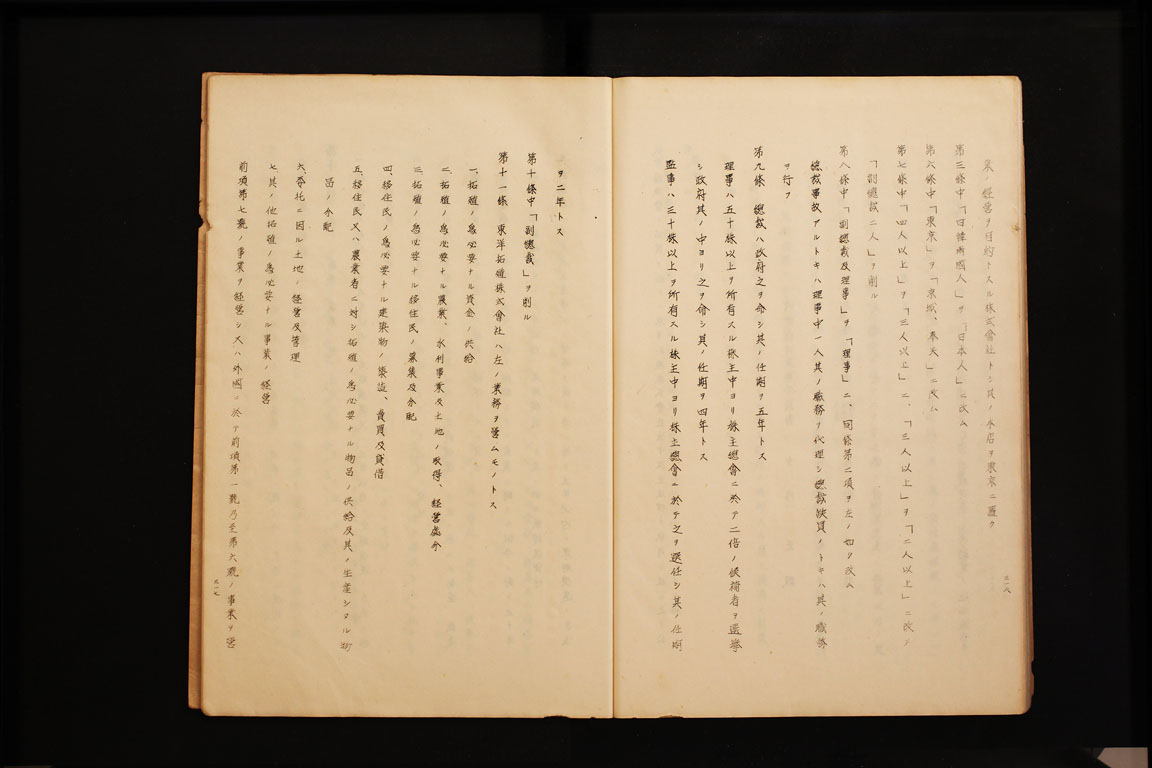 業ノ經營ヲ目的トスル株式會社トシ其ノ本店ヲ東京ニ置ク
第三條中「日韓兩國人」ヲ「日本人」ニ改ム
第六條中「東京」ヲ「京城、奉天」ニ改ム
第七條中「四人以上」ヲ「三人以上」ニ、「三人以上」ヲ「二人以上」ニ改シ
「副總裁二人」ヲ削ル
第八條中「副總裁及理事」ヲ「理事」ニ、同條第二項ヲ左ノ如ク改ム
總裁事故アルトキハ理事中一人其ノ職務ヲ代理シ總裁缺員ノトキハ其ノ職務
ヲ行フ
第九條 總裁ハ政府之ヲ命シ其ノ任期ヲ五年トス
理事ハ五十株以上ヲ所有スル株主中ヨリ株主總會ニ於テ二倍ノ候補者ヲ選擧
シ政府其ノ中ヨリ之ヲ命シ其ノ任期ヲ四年トス
監事ハ三十株以上ヲ所有スル株主中ヨリ株主總會ニ於テ之ヲ選任シ其ノ任期
ヲ二年トス
第十條中「副總裁」ヲ削ル
第十一條 東洋拓殖株式會社ハ左ノ業務ヲ營ムモノトス
一、拓殖ノ爲必要ナル資金ノ供給
二、拓殖ノ爲必要ナル農業、水利事業及土地ノ取得、經營處分
三、拓殖ノ爲必要ナル移住民ノ募集及分配
四、移住民ノ爲必要ナル建築物ノ築造、賣買及貸借
五、移住民又ハ農業者ニ對シ拓殖ノ爲必要ナル物品ノ供給及其ノ生產シタル物
品ノ分配
六、委托ニ因ル土地ノ經營及管理
七、其ノ他拓殖ノ爲必要ナル事業ノ經營
前項第七號ノ事業ヲ經營シ又ハ外國ニ於テ前項第一號乃至第六號ノ事業ヲ營